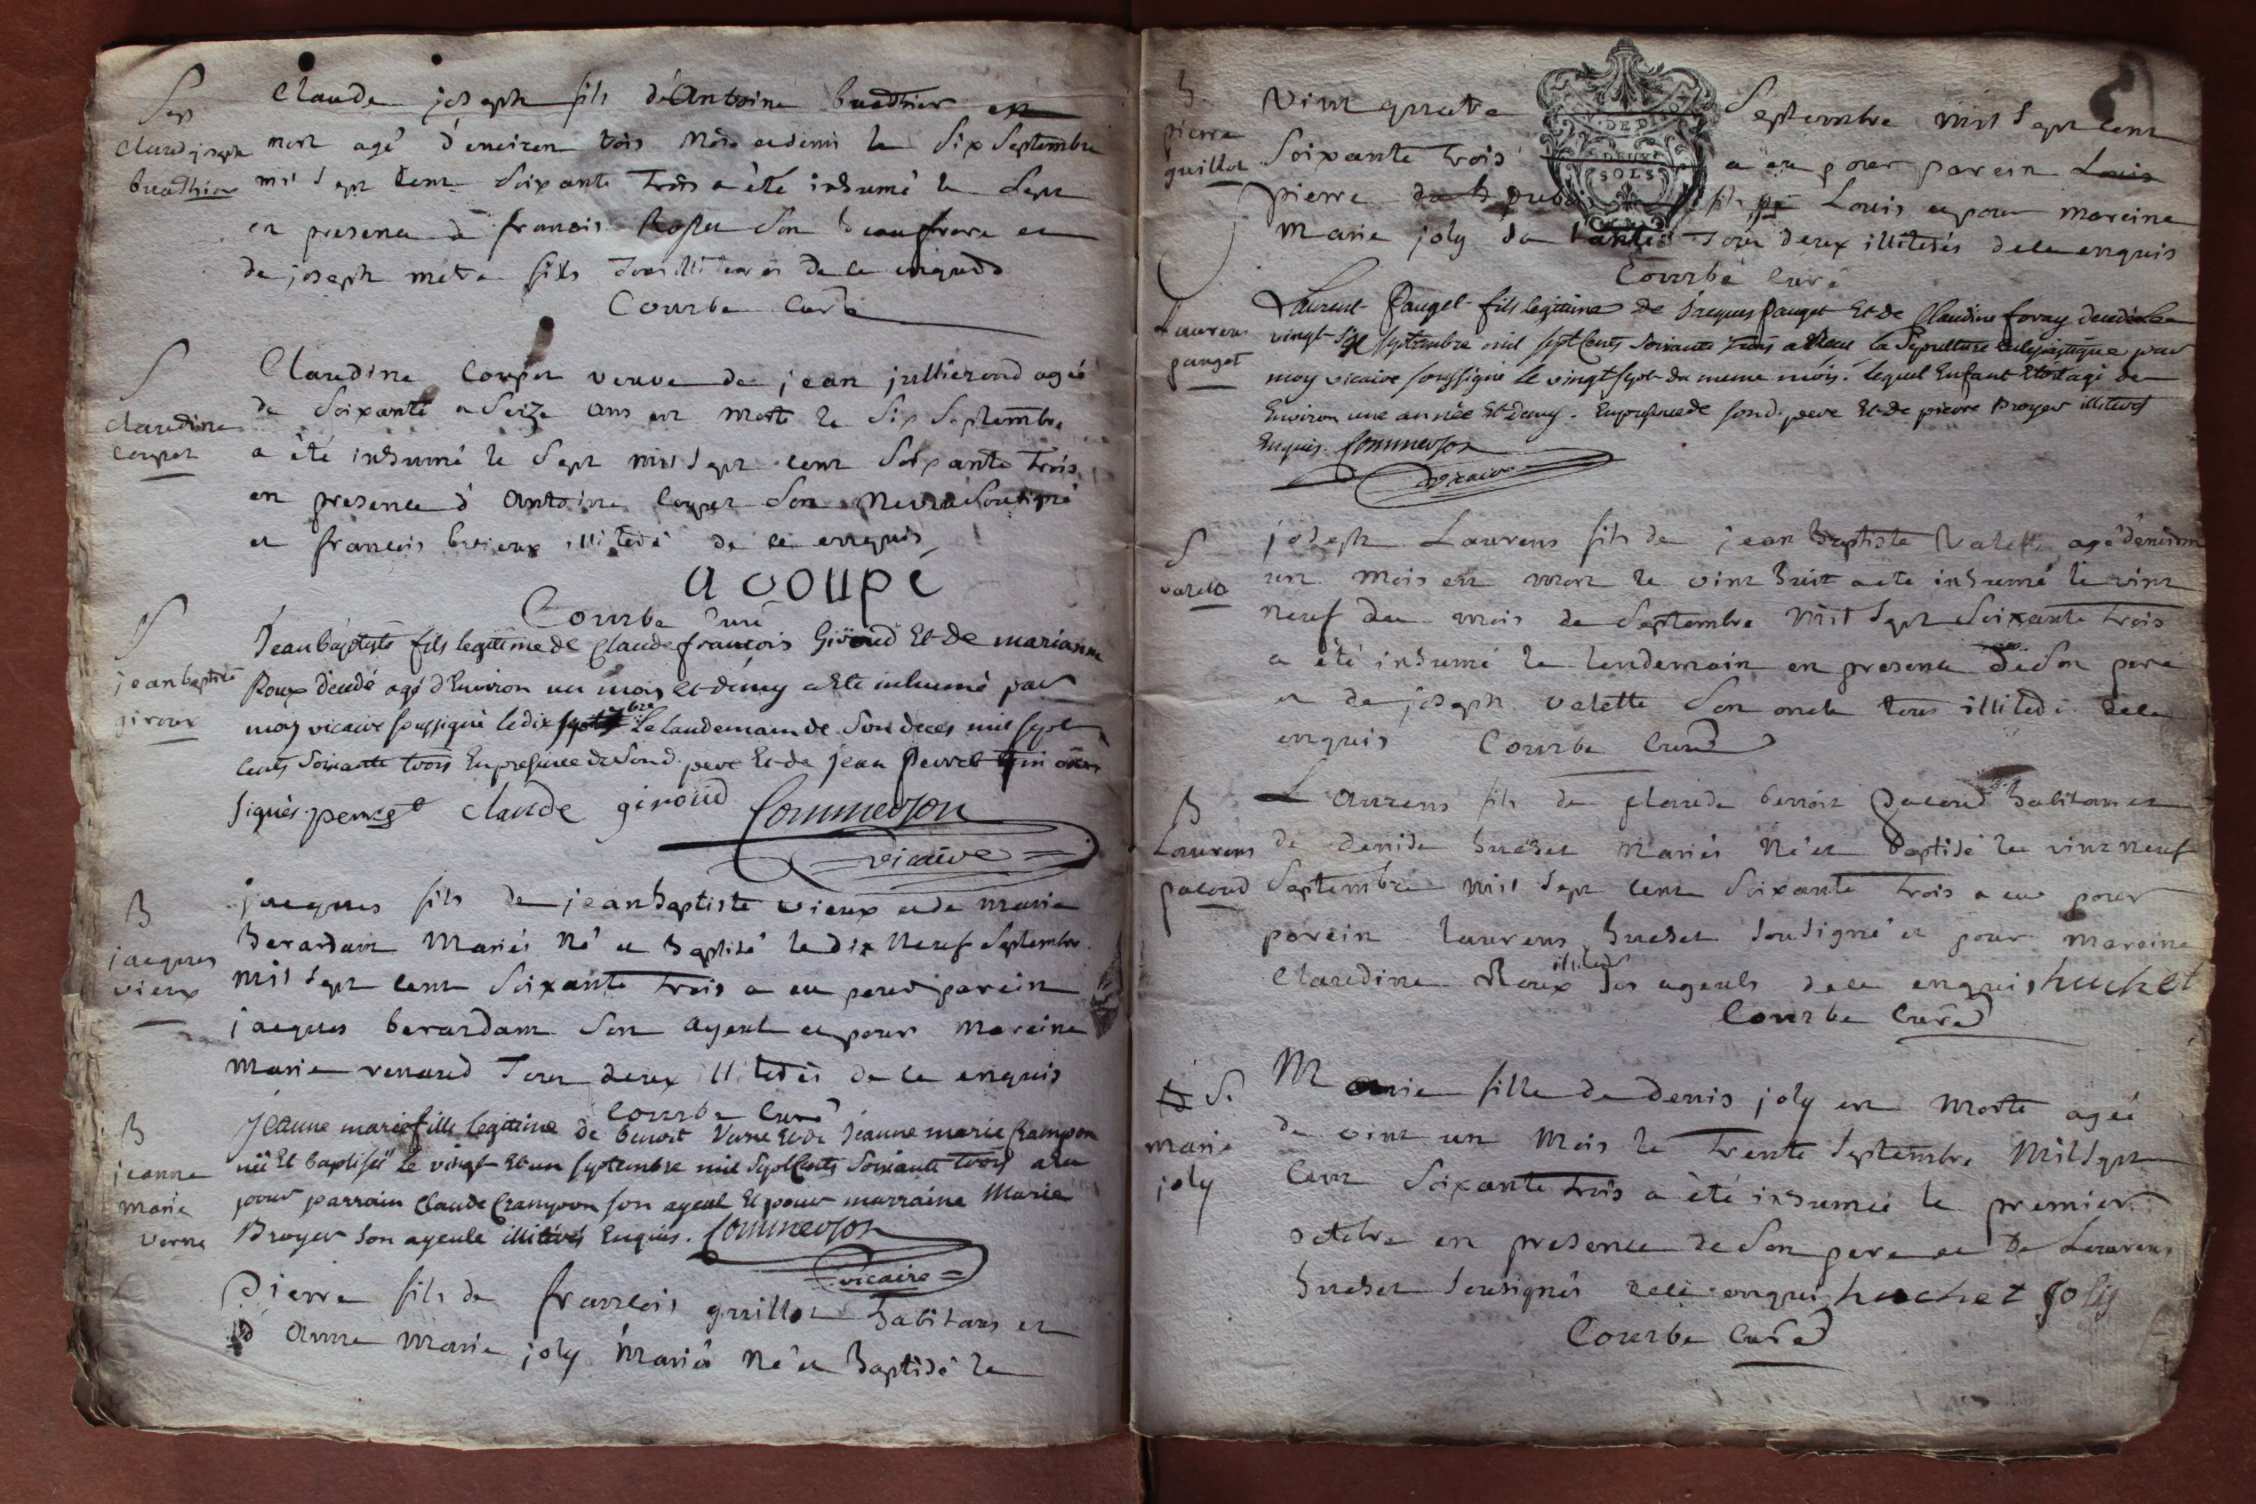 Sep
Claud joseph
Claude joseph fils d'Antoine
mort agé d'environ trois Mois et demi le Six Septembre
mil Sept Cent Soixante Trois a été inhumé le Sept
en presence de francois Son beaufrere et
de joseph fils Tous illiterés de ce enquis
Courbe Curé
S
Claudine
Coupet
Claudine Coupet veuve de jean agée
de Soixante et Seize ans est morte le Six Septembre
a été inhumé le Sept mil Sept cent Soixante Trois
en presence d'Antoine Coupet Son Neveu Sousigné
et francois illiteré de ce enquis
a coupé
Courbe Curé
S
jean baptiste
giroux
Jean baptiste fils legitime de Claude francois Giroud Et de marianne
Roux décédé agé d'Environ un mois et demy a Eté inhumé par
moy vicaire soussigné le dix 7bre Le Landemain de Son deces mil sept
Cents Soixante trois En presence de Son d. pere Et de jean Perret
Signés. perret Claude giroud Commerson
vicaire
B
jacques
vieux
jacques fils de jean baptiste vieux et de marie
berardan Mariés Né et baptisé le dix Neuf Septembre
mil Sept Cent Soixante trois a eu pour parein
jacques berardam Son ayeul et pour mareine
Marie renaud Tous deux illiterés de ce enquis
Courbe Curé
B
jeanne
marie
verne
Jeanne marie fille legitime de benoit Verne Et de Jeanne marie Crampon
née Et baptisée Le vingt Et un septembre mil Sept Cents Soixante trois a eu
pour parrain Claude Crampon son ayeul Et pour marraine Marie
Broyer Son ayeule illiterés Enquis. Commerson
vicaire
Pierre fils de francois guillot habitans et
d'Anne Marie joly Mariés Né et Baptisé le
B
pierre
guillot
vint quatre Septembre mil Sept cent
DE DIJON
DEUX
SOLS
Soixante trois a eu pour parein Louis
pierre fils de Louis et pour mareine
Marie joly Sa tante Tous deux illiterés de ce enquis
Courbe Curé
Laurens
pauget
Laurent Pauget fils legitime de Jacques Pauget Et de Claudine foray decedé Le
vingt Six septembre mil sept Cents Soixante Trois a Reçu la Sepulture Eclesiastique par
moy vicaire soussigné Le vingt sept du meme mois. Lequel Enfant Etoit agé de
Environ une année Et demy. En presence de son d. pere Et de pierre Broyer illiterés
Enquis. Commerson
vicaire
S
valette
joseph Laurens fils de jean Baptiste Valette agé d'environ
un mois est mort le vint huit a été inhumé le vint
neuf du mois de Septembre mil Sept Soixante trois
a été inhumé le lendemain en presence de Son pere
et de joseph valette Son oncle tous illiterés de ce
enquis Courbe Curé
B
Laurens
pacoud
Laurens fils de Claude benoit Pacoud habitans et
de denise huchet Mariés Né et Baptisé le vint neuf
Septembre mil Sept Cent Soixante trois a eu pour
parein laurens huchet Sousigné et pour mareine
illiterés
Claudine Roux Ses ayeuls de ce enquis huchet
Courbe Curé
S.
Marie
joly
Marie fille de denis joly est Morte agée
de vint un Mois le Trente Septembre Mil Sept
Cent Soixante trois a été inhumée le premier
octobre en presence de Son pere et De Laurens
huchet Sousignés de ce enquis huchet Joly
Courbe Curé